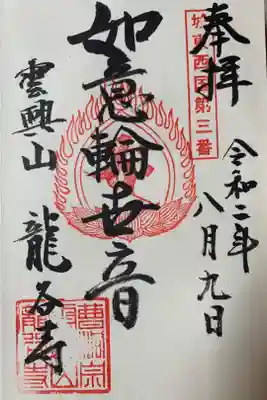 奉拝
城東西国第三番
令和二年
八月九日
如意輪世音
雲興山 龍谷寺
曹洞宗
龍谷寺